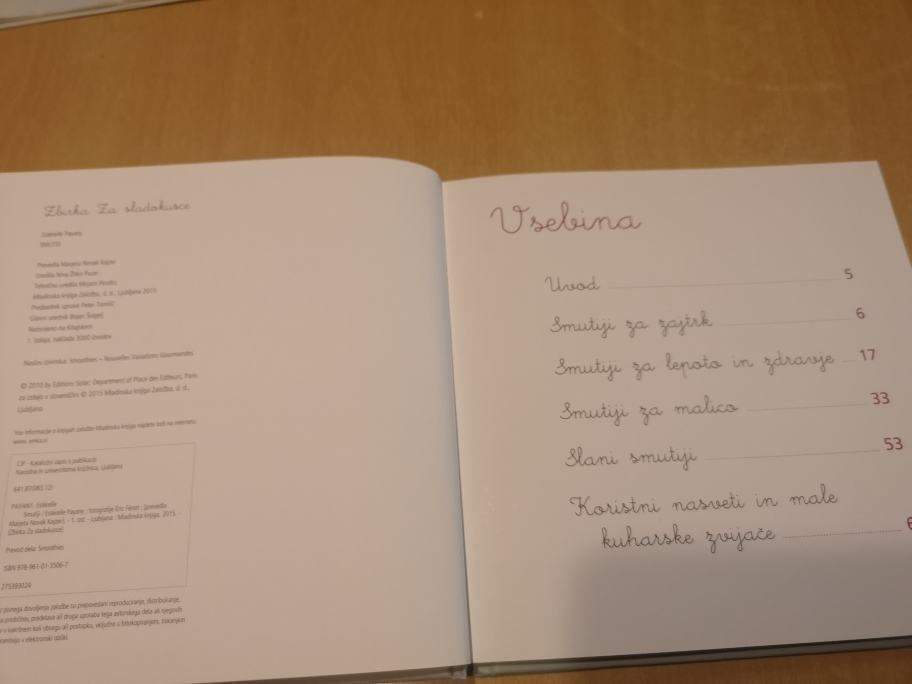 Zbirka Za sladokusce
Estérelle Payany
SMUTIJI
Prevedla Marjeta Novak Kajzer
Uredila Nina Žitko Pucer
Tehnično uredila Mirjam Pezdirc
Mladinska knjiga Založba, d. d., Ljubljana 2015
Predsednik uprave Peter Tomšič
Glavni urednik Bojan Švigelj
Natisnjeno na Kitajskem
1. izdaja, naklada 3000 izvodov
Naslov izvirnika: Smoothies – Nouvelles Variations Gourmandes
© 2010 by Editions Solar, Department of Place des Editeurs, Paris
za izdajo v slovenščini © 2015 Mladinska knjiga Založba, d. d.,
Ljubljana
Vse informacije o knjigah založbe Mladinska knjiga najdete tudi na internetu:
www.emka.si
CIP - Kataložni zapis o publikaciji
Narodna in univerzitetna knjižnica, Ljubljana
641.87(083.12)
PAYANY, Estérelle
Smutiji / Estérelle Payany ; fotografije Eric Fénot ; [prevedla
Marjeta Novak Kajzer]. - 1. izd. - Ljubljana : Mladinska knjiga, 2015. -
(Zbirka Za sladokusce)
Prevod dela: Smoothies
ISBN 978-961-01-3506-7
275393024
pisnega dovoljenja založbe so prepovedani reproduciranje, distribuiranje,
predelava ali druga uporaba tega avtorskega dela ali njegovih
v kakršnem koli obsegu ali postopku, vključno s fotokopiranjem, tiskanjem
v elektronski obliki.
Vsebina
Uvod 5
Smutiji za zajtrk 6
Smutiji za lepoto in zdravje 17
Smutiji za malico 33
Slani smutiji 53
Koristni nasveti in male
kuharske zvijače